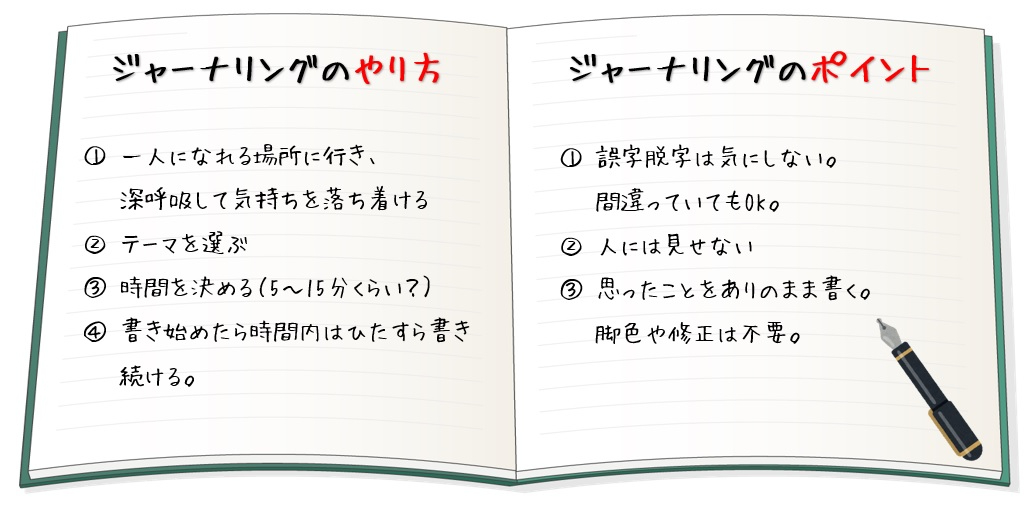 ジャーナリングのやり方
① 一人になれる場所に行き、
深呼吸して気持ちを落ち着ける
② テーマを選ぶ
③ 時間を決める(5～15分くらい?)
④ 書き始めたら時間内はひたすら書き
続ける。
ジャーナリングのポイント
① 誤字脱字は気にしない。
間違っていてもOK。
② 人には見せない
③ 思ったことをありのまま書く。
脚色や修正は不要。